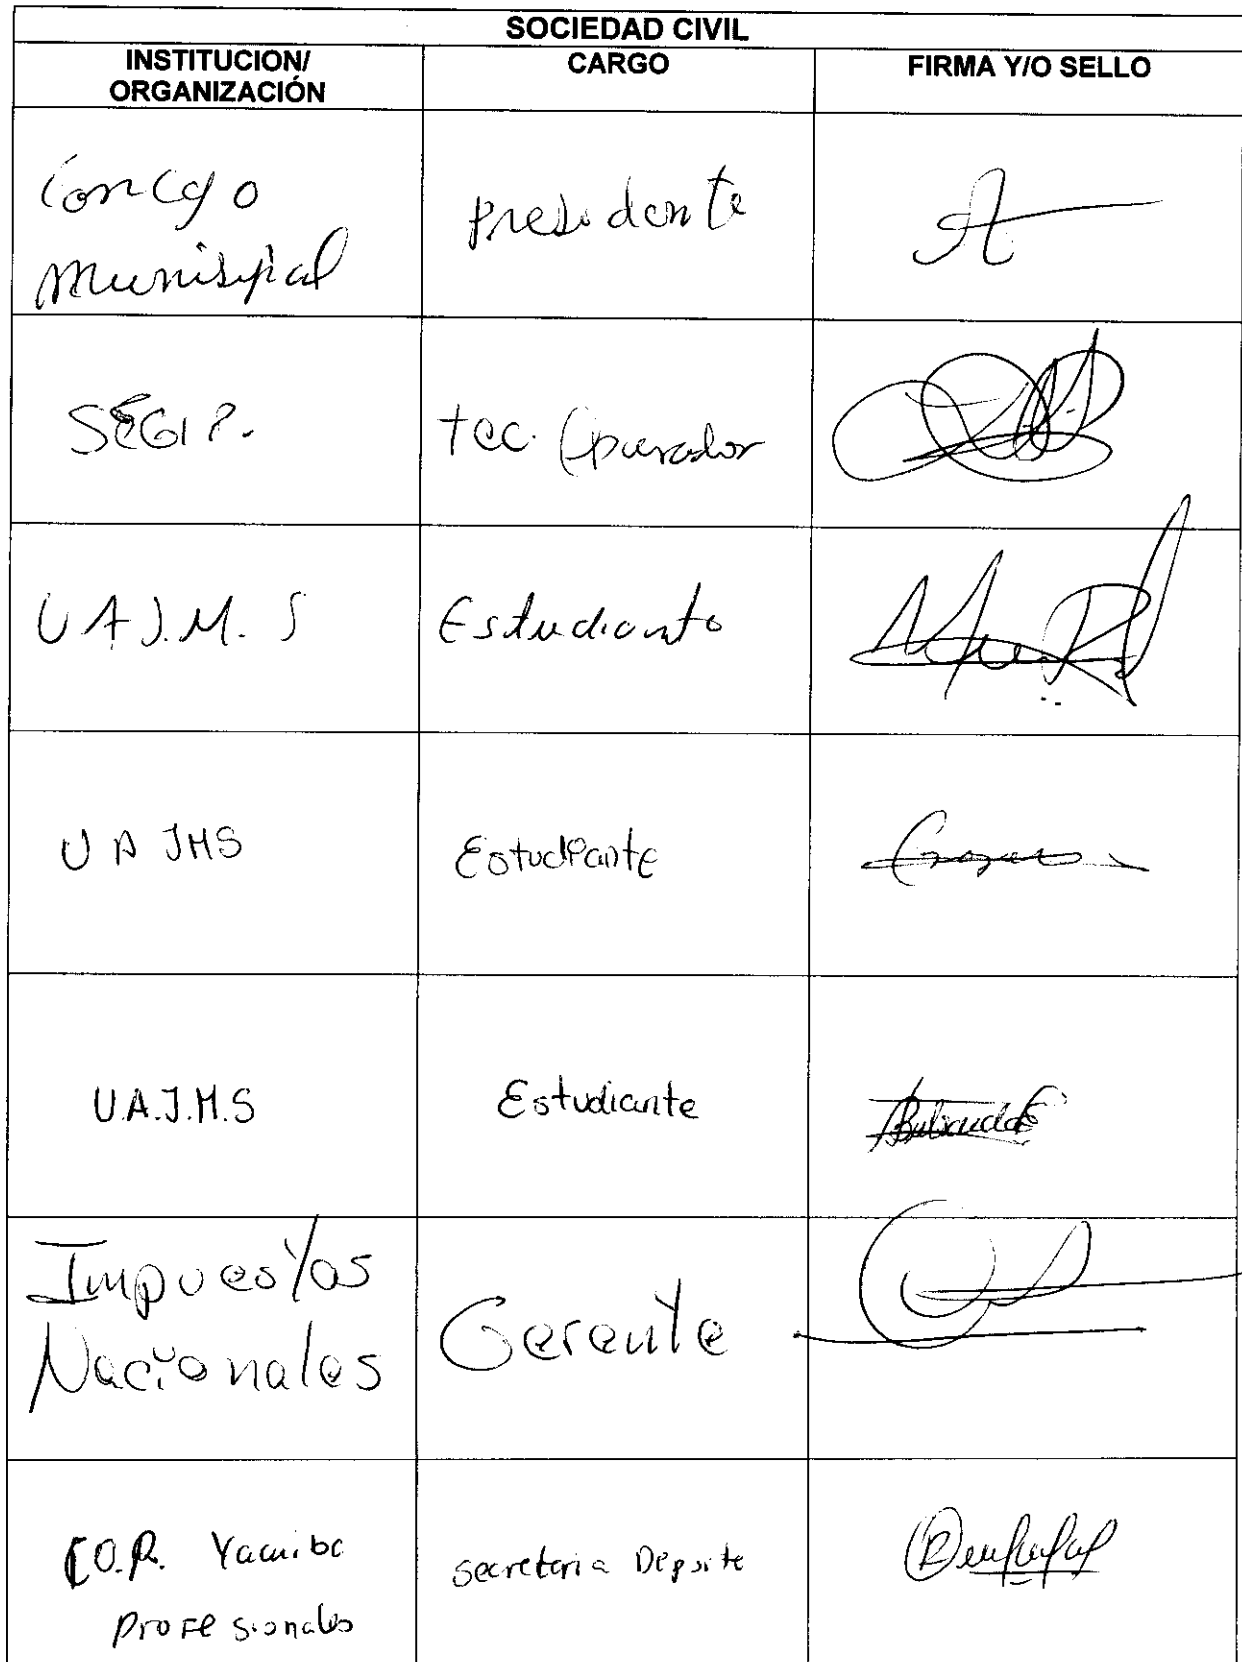 SOCIEDAD CIVIL
INSTITUCION/
ORGANIZACIÓN
CARGO
FIRMA Y/O SELLO
Concejo
Munisipal
Presidente
SEGIP.
Tec. Operador
U A J. M. S
Estudiante
U A JMS
Estudiante
U.A.J.M.S
Estudiante
Impuestos
Nacionales
Gerente
C.O.R. Yacuiba
Profesionales
Secretaria Deporte